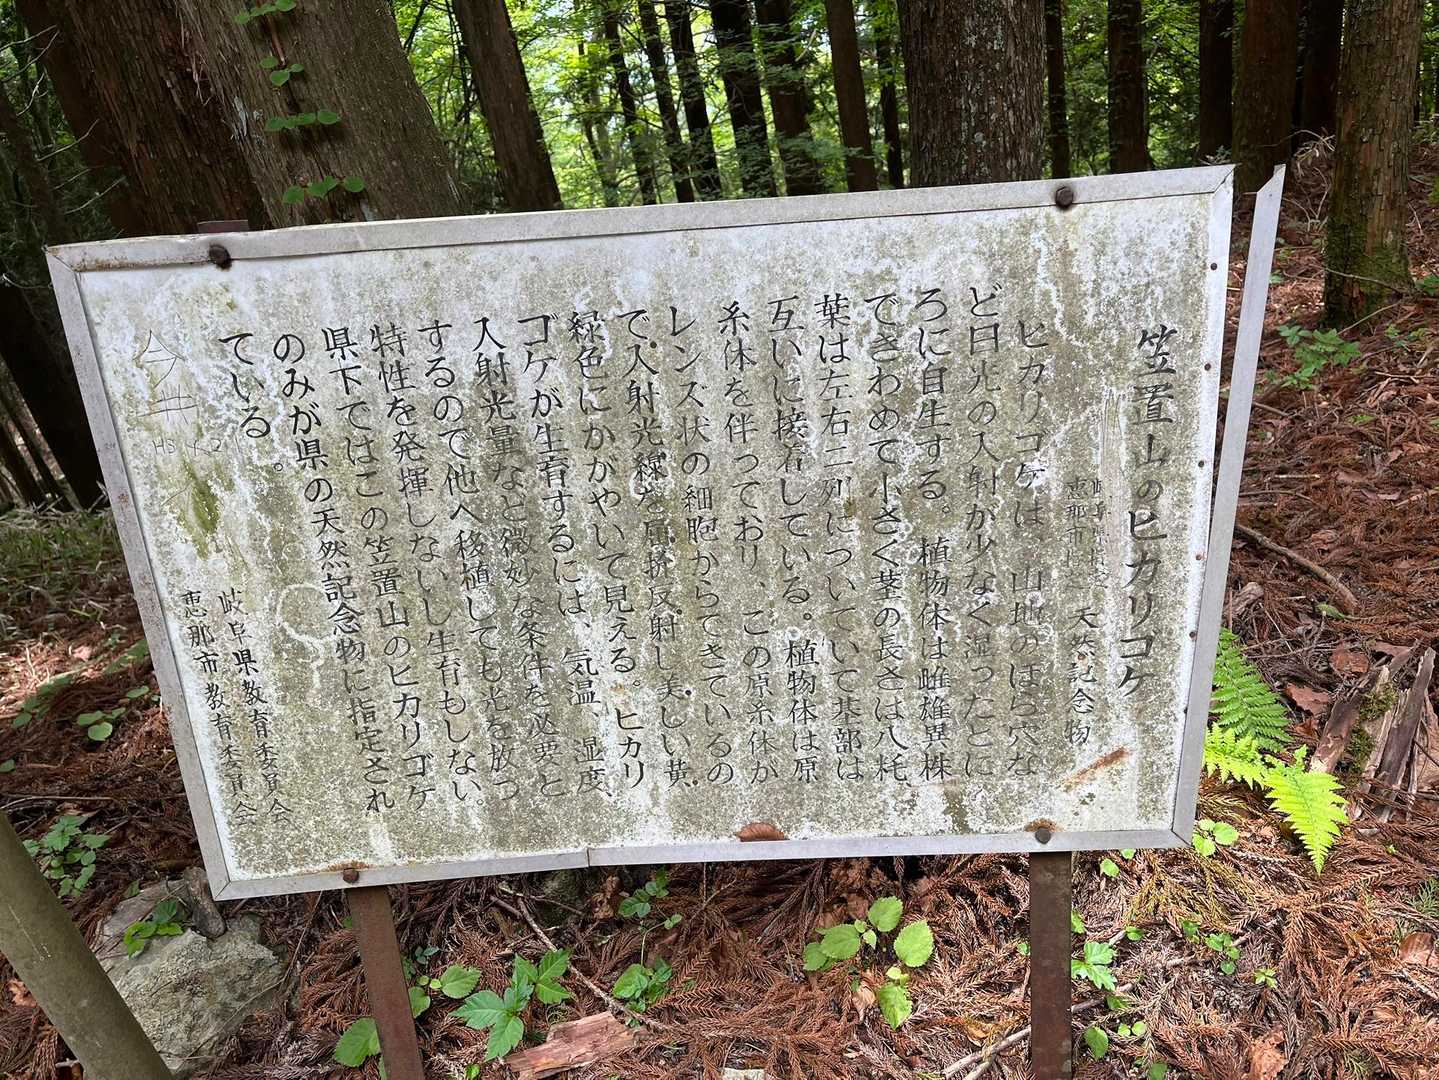 笠置山のヒカリゴケ
岐阜県指定
恵那市指定
天然記念物
ヒカリゴケは、山地のほら穴な
ど日光の入射が少なく湿ったとこ
ろに自生する。植物体は雌雄異株
できわめて小さく茎の長さは八粍、
葉は左右二列についていて基部は
互いに接着している。植物体は原
糸体を伴っており、この原糸体が
レンズ状の細胞からできているの
で入射光線を屈折反射し美しい黄
緑色にかがやいて見える。ヒカリ
ゴケが生育するには、気温、湿度、
入射光量など微妙な条件を必要と
するので他へ移植しても光を放つ
特性を発揮しないし生育もしない。
県下ではこの笠置山のヒカリゴケ
のみが県の天然記念物に指定され
ている。
岐阜県教育委員会
恵那市教育委員会
今井